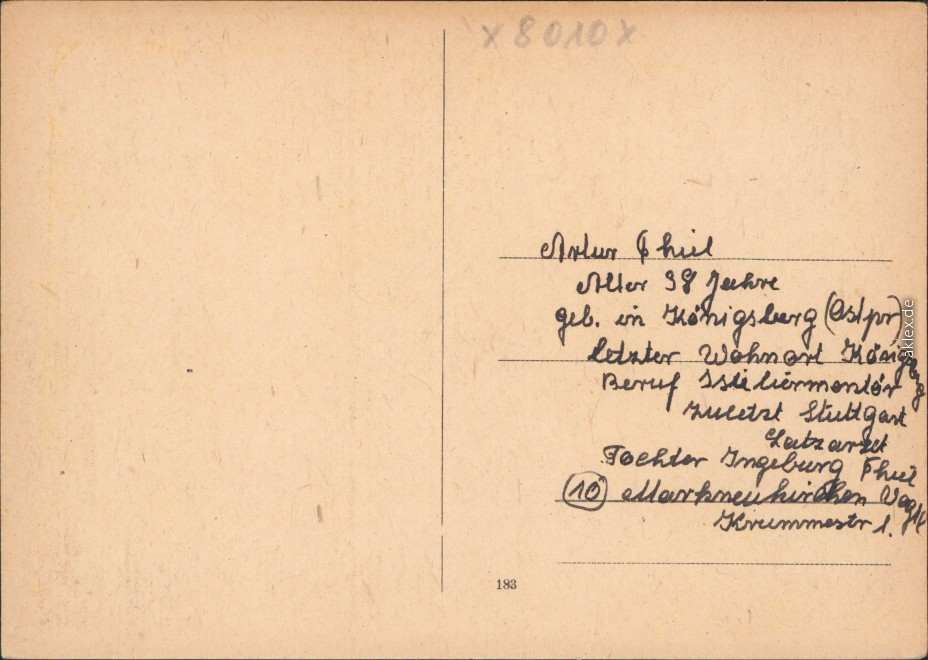 x8010x
Artur Thiel
Alter 38 Jahre
geb. in Königsberg (Ostpr)
letzter Wohnort Königsberg
Beruf Isteliermontör
zuletzt Stuttgart
Latzarett
Tochter Ingeburg Thiel
(10) Markneukirchen Vogtl
Krummestr 1.
183
aklex.de